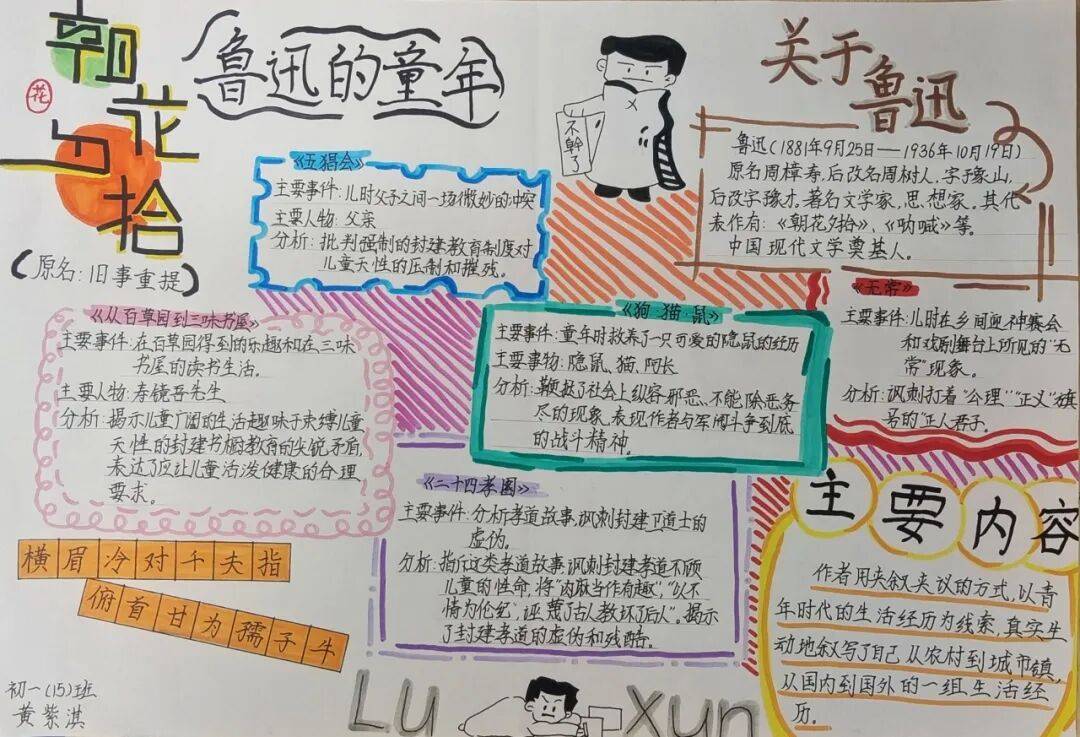 朝花夕拾
花
(原名:旧事重提)
鲁迅的童年
不幹了
关于鲁迅
鲁迅(1881年9月25日——1936年10月19日)
原名周樟寿,后改名周树人,字豫山,
后改字豫才,著名文学家、思想家。其代
表作有:《朝花夕拾》、《呐喊》等。
中国现代文学奠基人。
《五猖会》
主要事件:儿时父子之间一场微妙的冲突
主要人物:父亲
分析:批判强制的封建教育制度对
儿童天性的压制和摧残。
《从百草园到三味书屋》
主要事件:在百草园得到的乐趣和在三味
书屋的读书生活。
主要人物:寿镜吾先生
分析:揭示儿童广阔的生活趣味于束缚儿童
天性的封建书橱教育的尖锐矛盾,
表达了应让儿童活泼健康的合理
要求。
《狗·猫·鼠》
主要事件:童年时救养了一只可爱的隐鼠的经历
主要事物:隐鼠、猫、阿长
分析:鞭挞了社会上纵容邪恶、不能除恶务
尽的现象,表现作者与军阀斗争到底
的战斗精神。
《无常》
主要事件:儿时在乡间迎神赛会
和戏剧舞台上所见的“无
常”现象。
分析:讽刺打着“公理”“正义”旗
号的“正人君子。
《二十四孝图》
主要事件:分析孝道故事,讽刺封建卫道士的
虚伪。
分析:指斥这类孝道故事,讽刺封建孝道不顾
儿童的性命,将“肉麻当作有趣”,“以不
情为伦纪,诬蔑了古人,教坏了后人”。揭示
了封建孝道的虚伪和残酷。
主要内容
作者用夹叙夹议的方式,以青
年时代的生活经历为线索,真实生
动地叙写了自己从农村到城市镇,
从国内到国外的一组生活经
历。
横眉冷对千夫指
俯首甘为孺子牛
初一(15)班
黄紫淇
Lu Xun